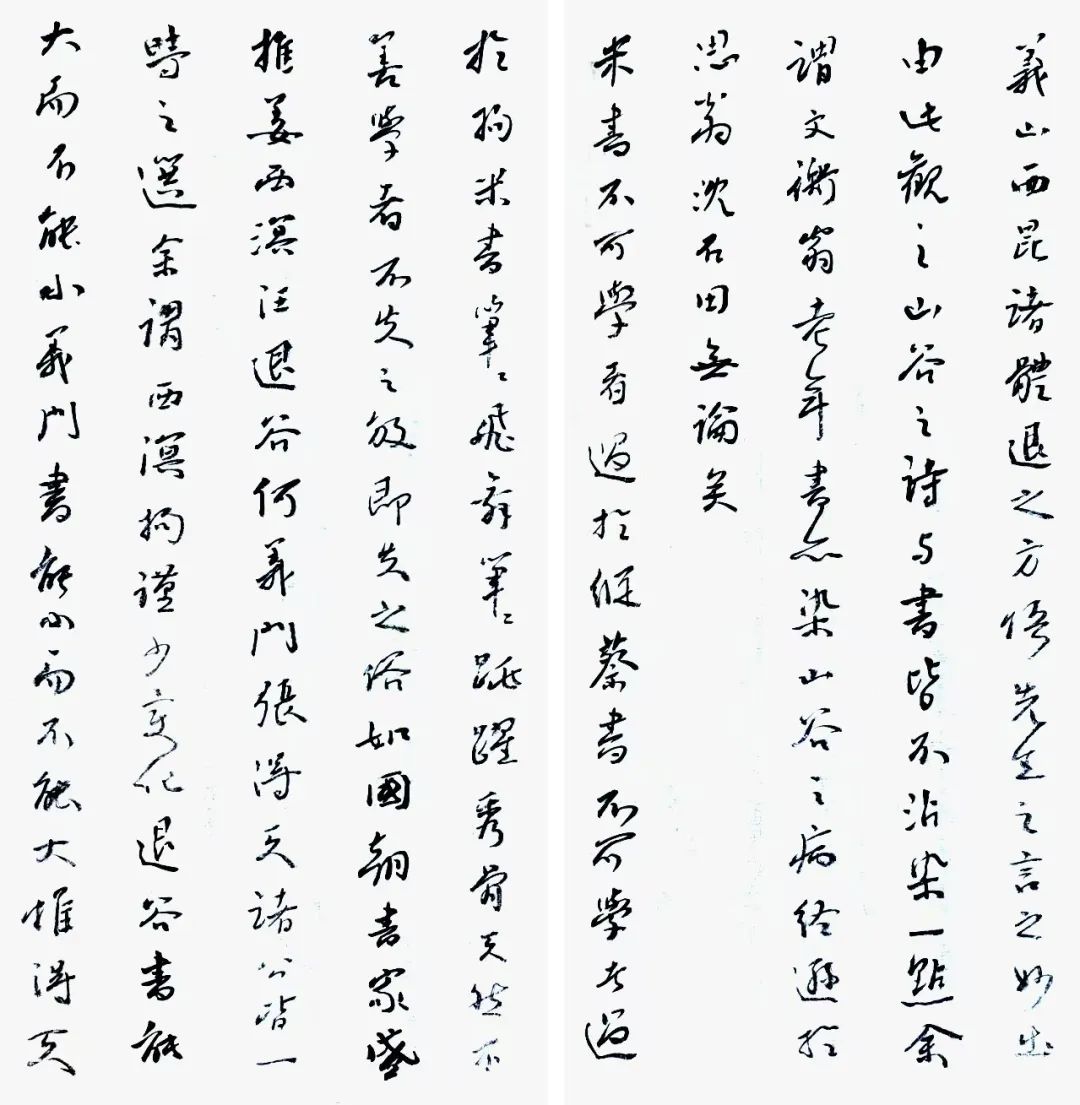 義山西昆諸體退之方悟先生之言之妙
由此觀之山谷之詩与書皆不沾染一點余
謂文衡翁老年書亦染山谷之病終遜於
思翁沈石田無論矣
米書不可學者過於縱蔡書不可學者過
於拘米書筆〻飛舞筆〻跳躍秀骨天然不
善學者不失之放即失之俗如國朝書家盛
推姜西溟汪退谷何義門張得天諸公皆一
時之選余謂西溟拘謹少變化退谷書能
大而不能小義門書能小而不能大惟得天